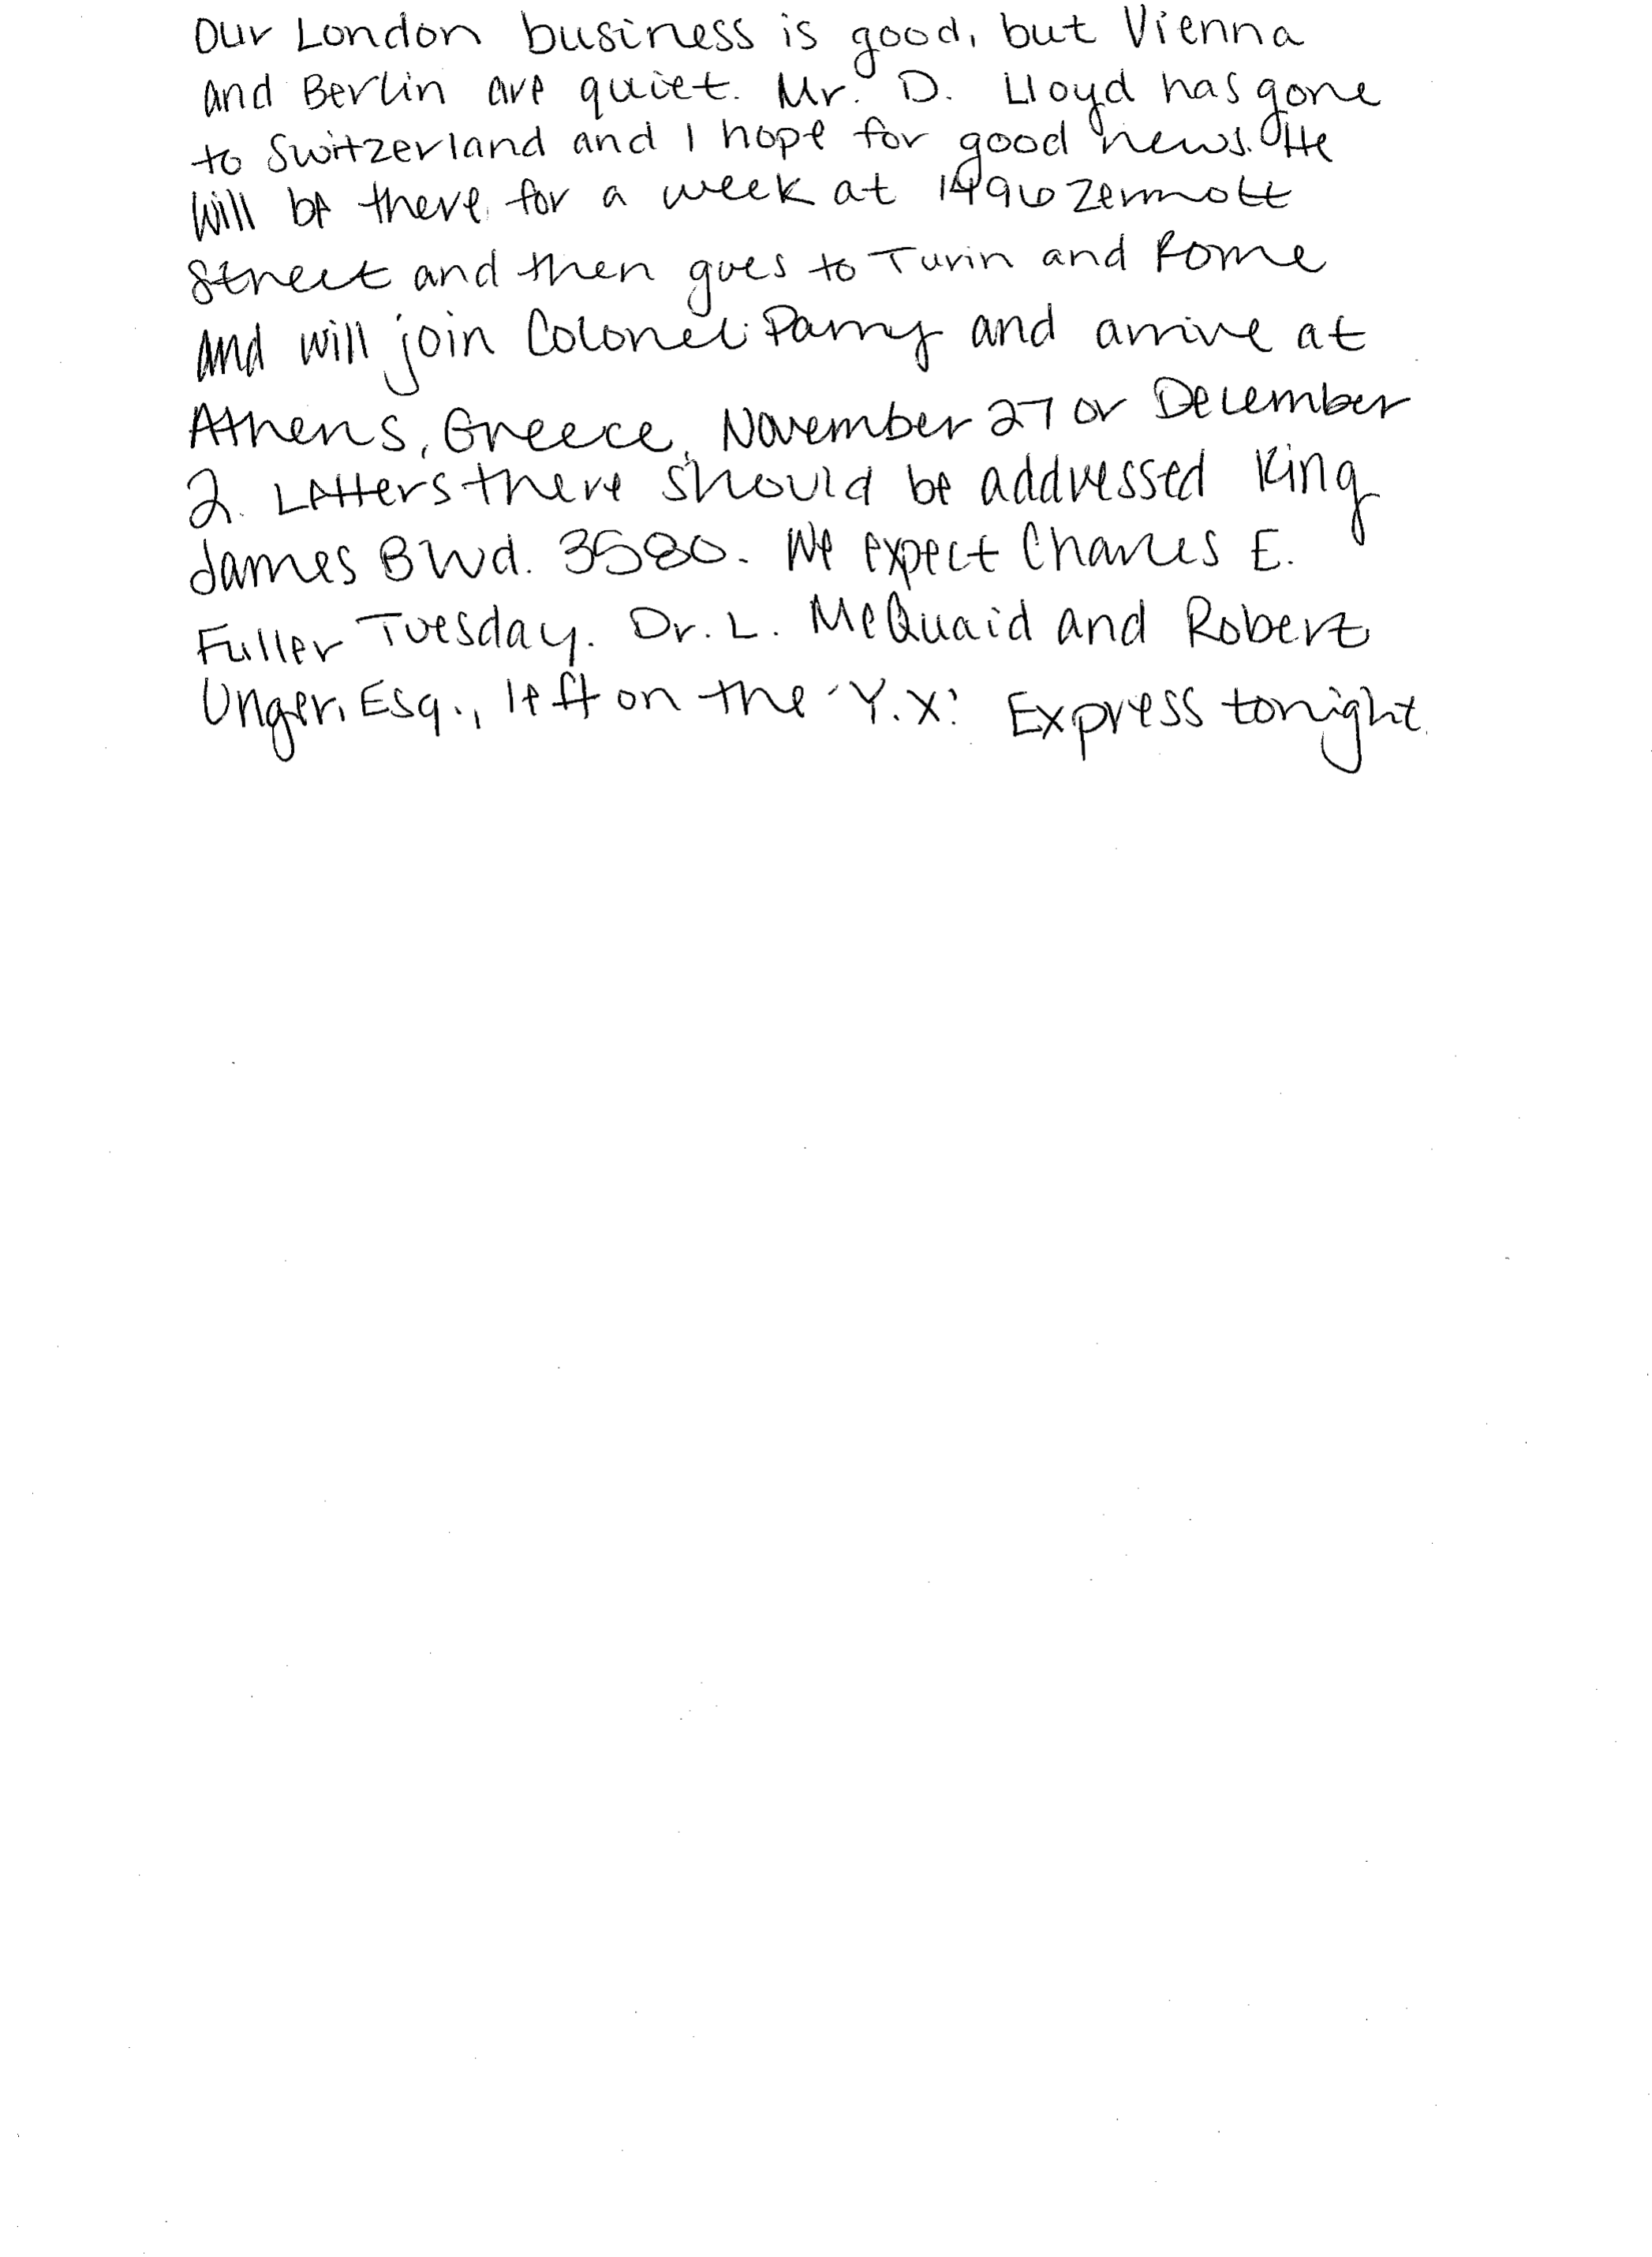 Our London business is good, but Vienna
and Berlin are quiet. Mr. D. Lloyd has gone
to Switzerland and I hope for good news. He
will be there for a week at 1496 Zermott
Street and then goes to Turin and Rome
and will join Colonel Parry and arrive at
Athens, Greece, November 27 or December
2. Letters there should be addressed King
James Blvd. 3580. We expect Charles E.
Fuller Tuesday. Dr. L. McQuaid and Robert
Unger, Esq., left on the 'Y.X.' Express tonight.